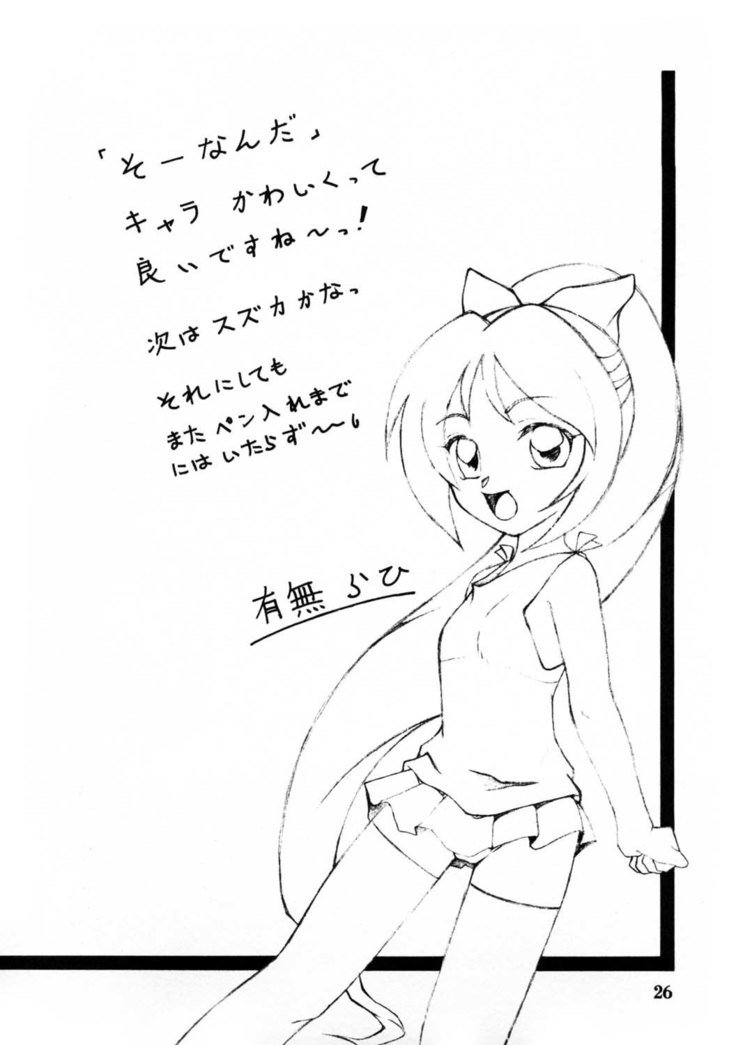 「そーなんだ」
キャラ かわいくって
良いですね～っ!
次は スズカかなっ
それにしても
また ペン入れまで
には いたらず～～
有無 らひ
26